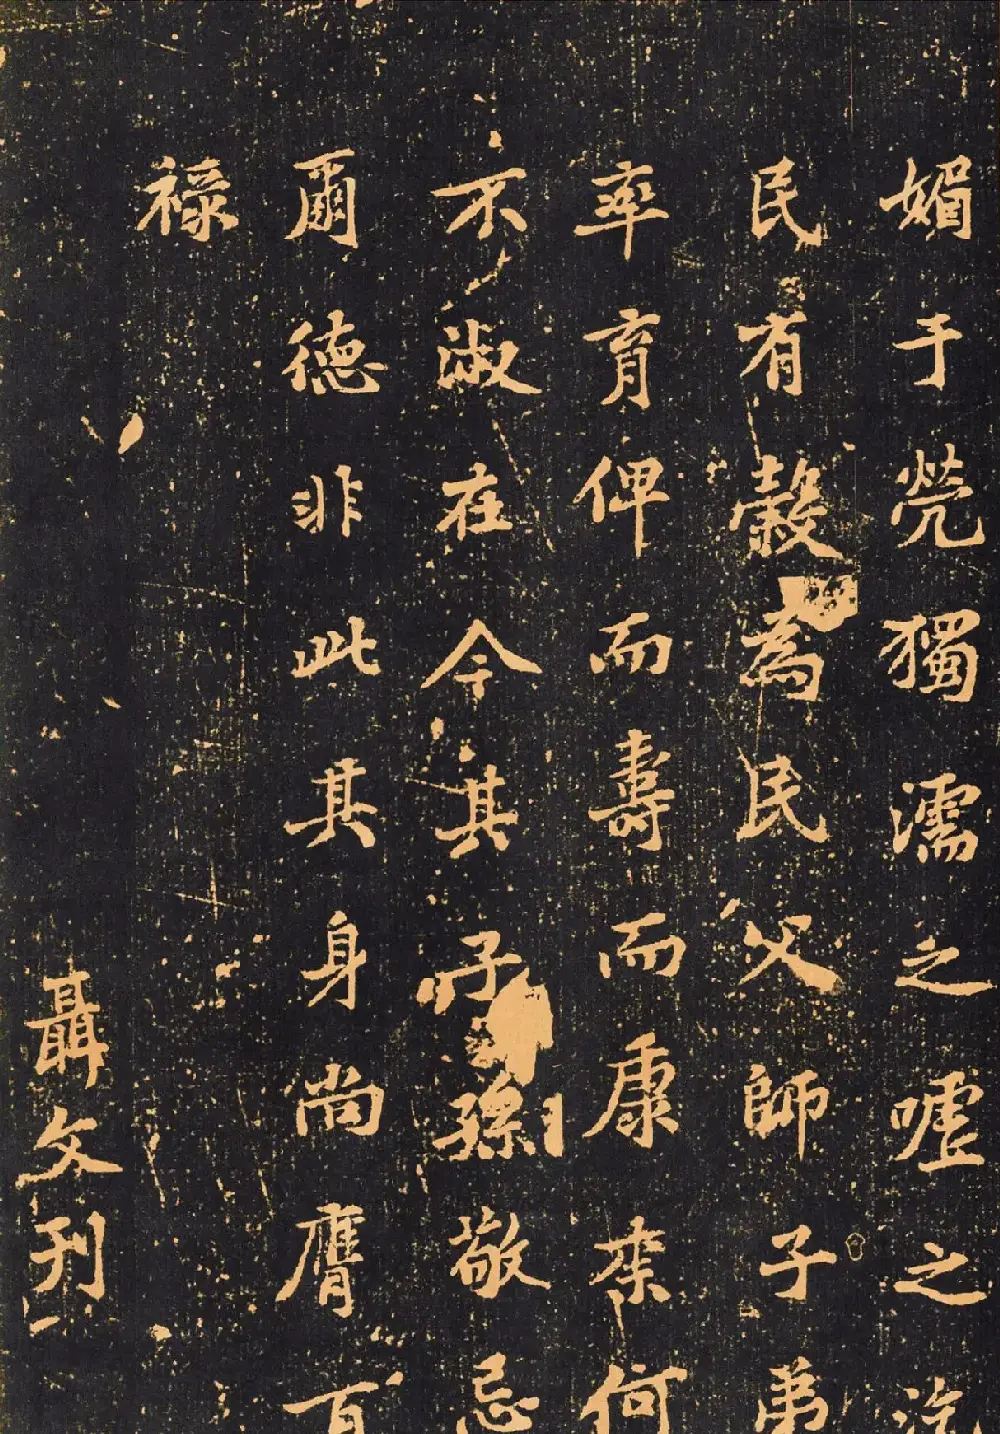 媚于煢獨濡之噓之
民有穀為民父師子弟
率育俾而壽而康柰何
不淑在今其子孫敬忌
爾德非此其身尚膺百
祿
聶文刊